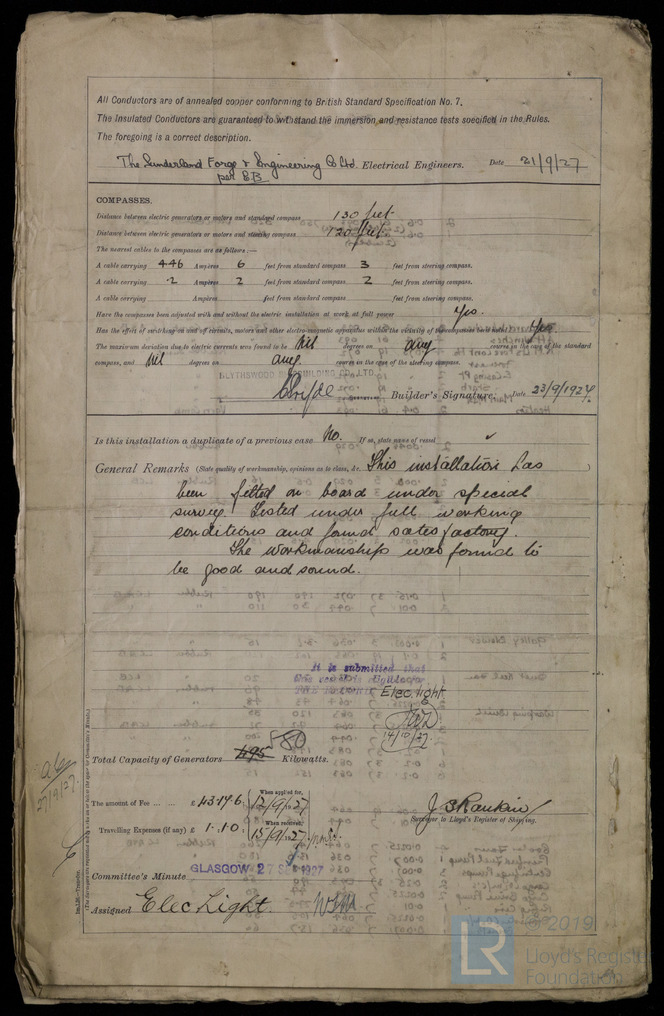 All Conductors are of annealed copper conforming to British Standard Specification No. 7.
The Insulated Conductors are guaranteed to withstand the immersion and resistance tests specified in the Rules.
The foregoing is a correct description.
The Sunderland Forge & Engineering Co Ltd. Electrical Engineers. Date 21/9/27
per
COMPASSES.
Distance between electric generators or motors and standard compass 130 feet
Distance between electric generators or motors and steering compass 120 feet
The nearest cables to the compasses are as follows:—
A cable carrying 446 Ampères 6 feet from standard compass 3 feet from steering compass.
A cable carrying .2 Ampères 2 feet from standard compass 2 feet from steering compass.
A cable carrying Ampères feet from standard compass feet from steering compass.
Have the compasses been adjusted with and without the electric installation at work at full power Yes.
Has the effect of switching on and off circuits, motors and other electro-magnetic apparatus within the vicinity of the compasses been Yes.
The maximum deviation due to electric currents was found to be Nil degrees on any course in the case of the standard
compass, and Nil degrees on any course in the case of the steering compass.
BLYTHSWOOD SHIPBUILDING CO. LTD.
Builder's Signature. Date 23/9/1927
Is this installation a duplicate of a previous case No. If so, state name of vessel
General Remarks (State quality of workmanship, opinions as to class, &c. This installation has
been fitted on board under special
survey. Tested under full working
conditions and found satisfactory.
The workmanship was found to
be good and sound.
It is submitted that
Elec. light
14/10/27
Total Capacity of Generators 495 580 Kilowatts.
26
27/9/27
The amount of Fee ... ... £ 43.17.6 When applied for, 12/9/27
Travelling Expenses (if any) £ 1.1.0 When received, 15/9/27
J S Rankin
Surveyor to Lloyd's Register of Shipping.
Committee's Minute GLASGOW 27 SEP 1927
Assigned Elec Light.
Im.1.26—Transfer.
© 2019
LR
Lloyd's Register
Foundation